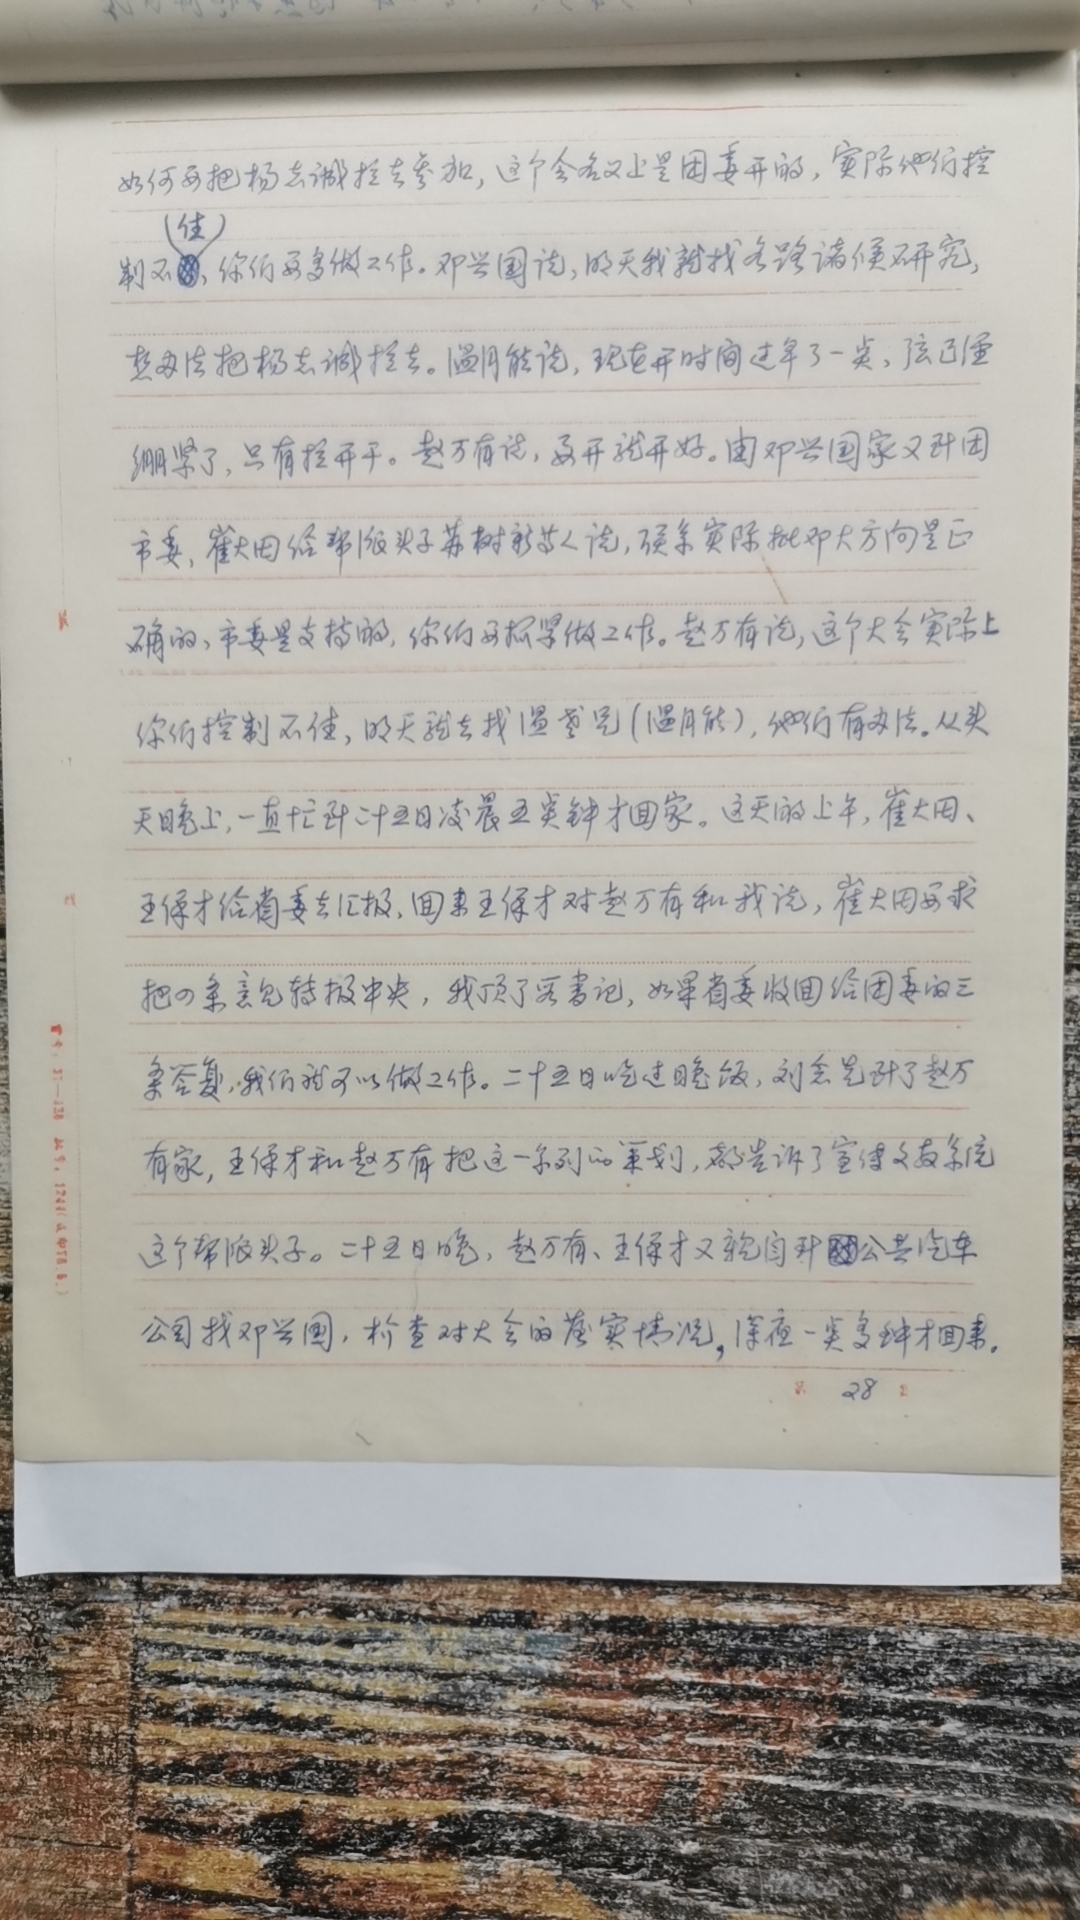 如何要把杨志诚拉去参加，这个会名义上是团委开的，实际他们控
（住）
制不，你们要多做工作。邓兴国说，明天我就找各路诸侯研究，
想办法把杨志诚拉去。温月能说，现在开时间过早了一点，弦已经
绷紧了，只有拉开干。赵万有说，要开就开好。由邓兴国家又到团
市委，崔大田给帮派头子苏树新等人说，联系实际批邓大方向是正
确的，市委是支持的，你们要抓紧做工作。赵万有说，这个大会实际上
你们控制不住，明天就去找温老兄（温月能），他们有办法。从头
天晚上，一直忙到二十五日凌晨五点钟才回家。这天的上午，崔大田、
王保才给省委去汇报，回来王保才对赵万有和我说，崔大田要求
把四条意见转报中央，我顶了书记，如果省委收回给团委的三
条答复，我们就可以做工作。二十五日吃过晚饭，刘念先到了赵万
有家，王保才和赵万有把这一系列的策划，都告诉了宣传文教系统
这个帮派头子。二十五日晚，赵万有、王保才又亲自到公共汽车
公司找邓兴国，检查对大会的落实情况，深夜一点多钟才回来。
第 28 页